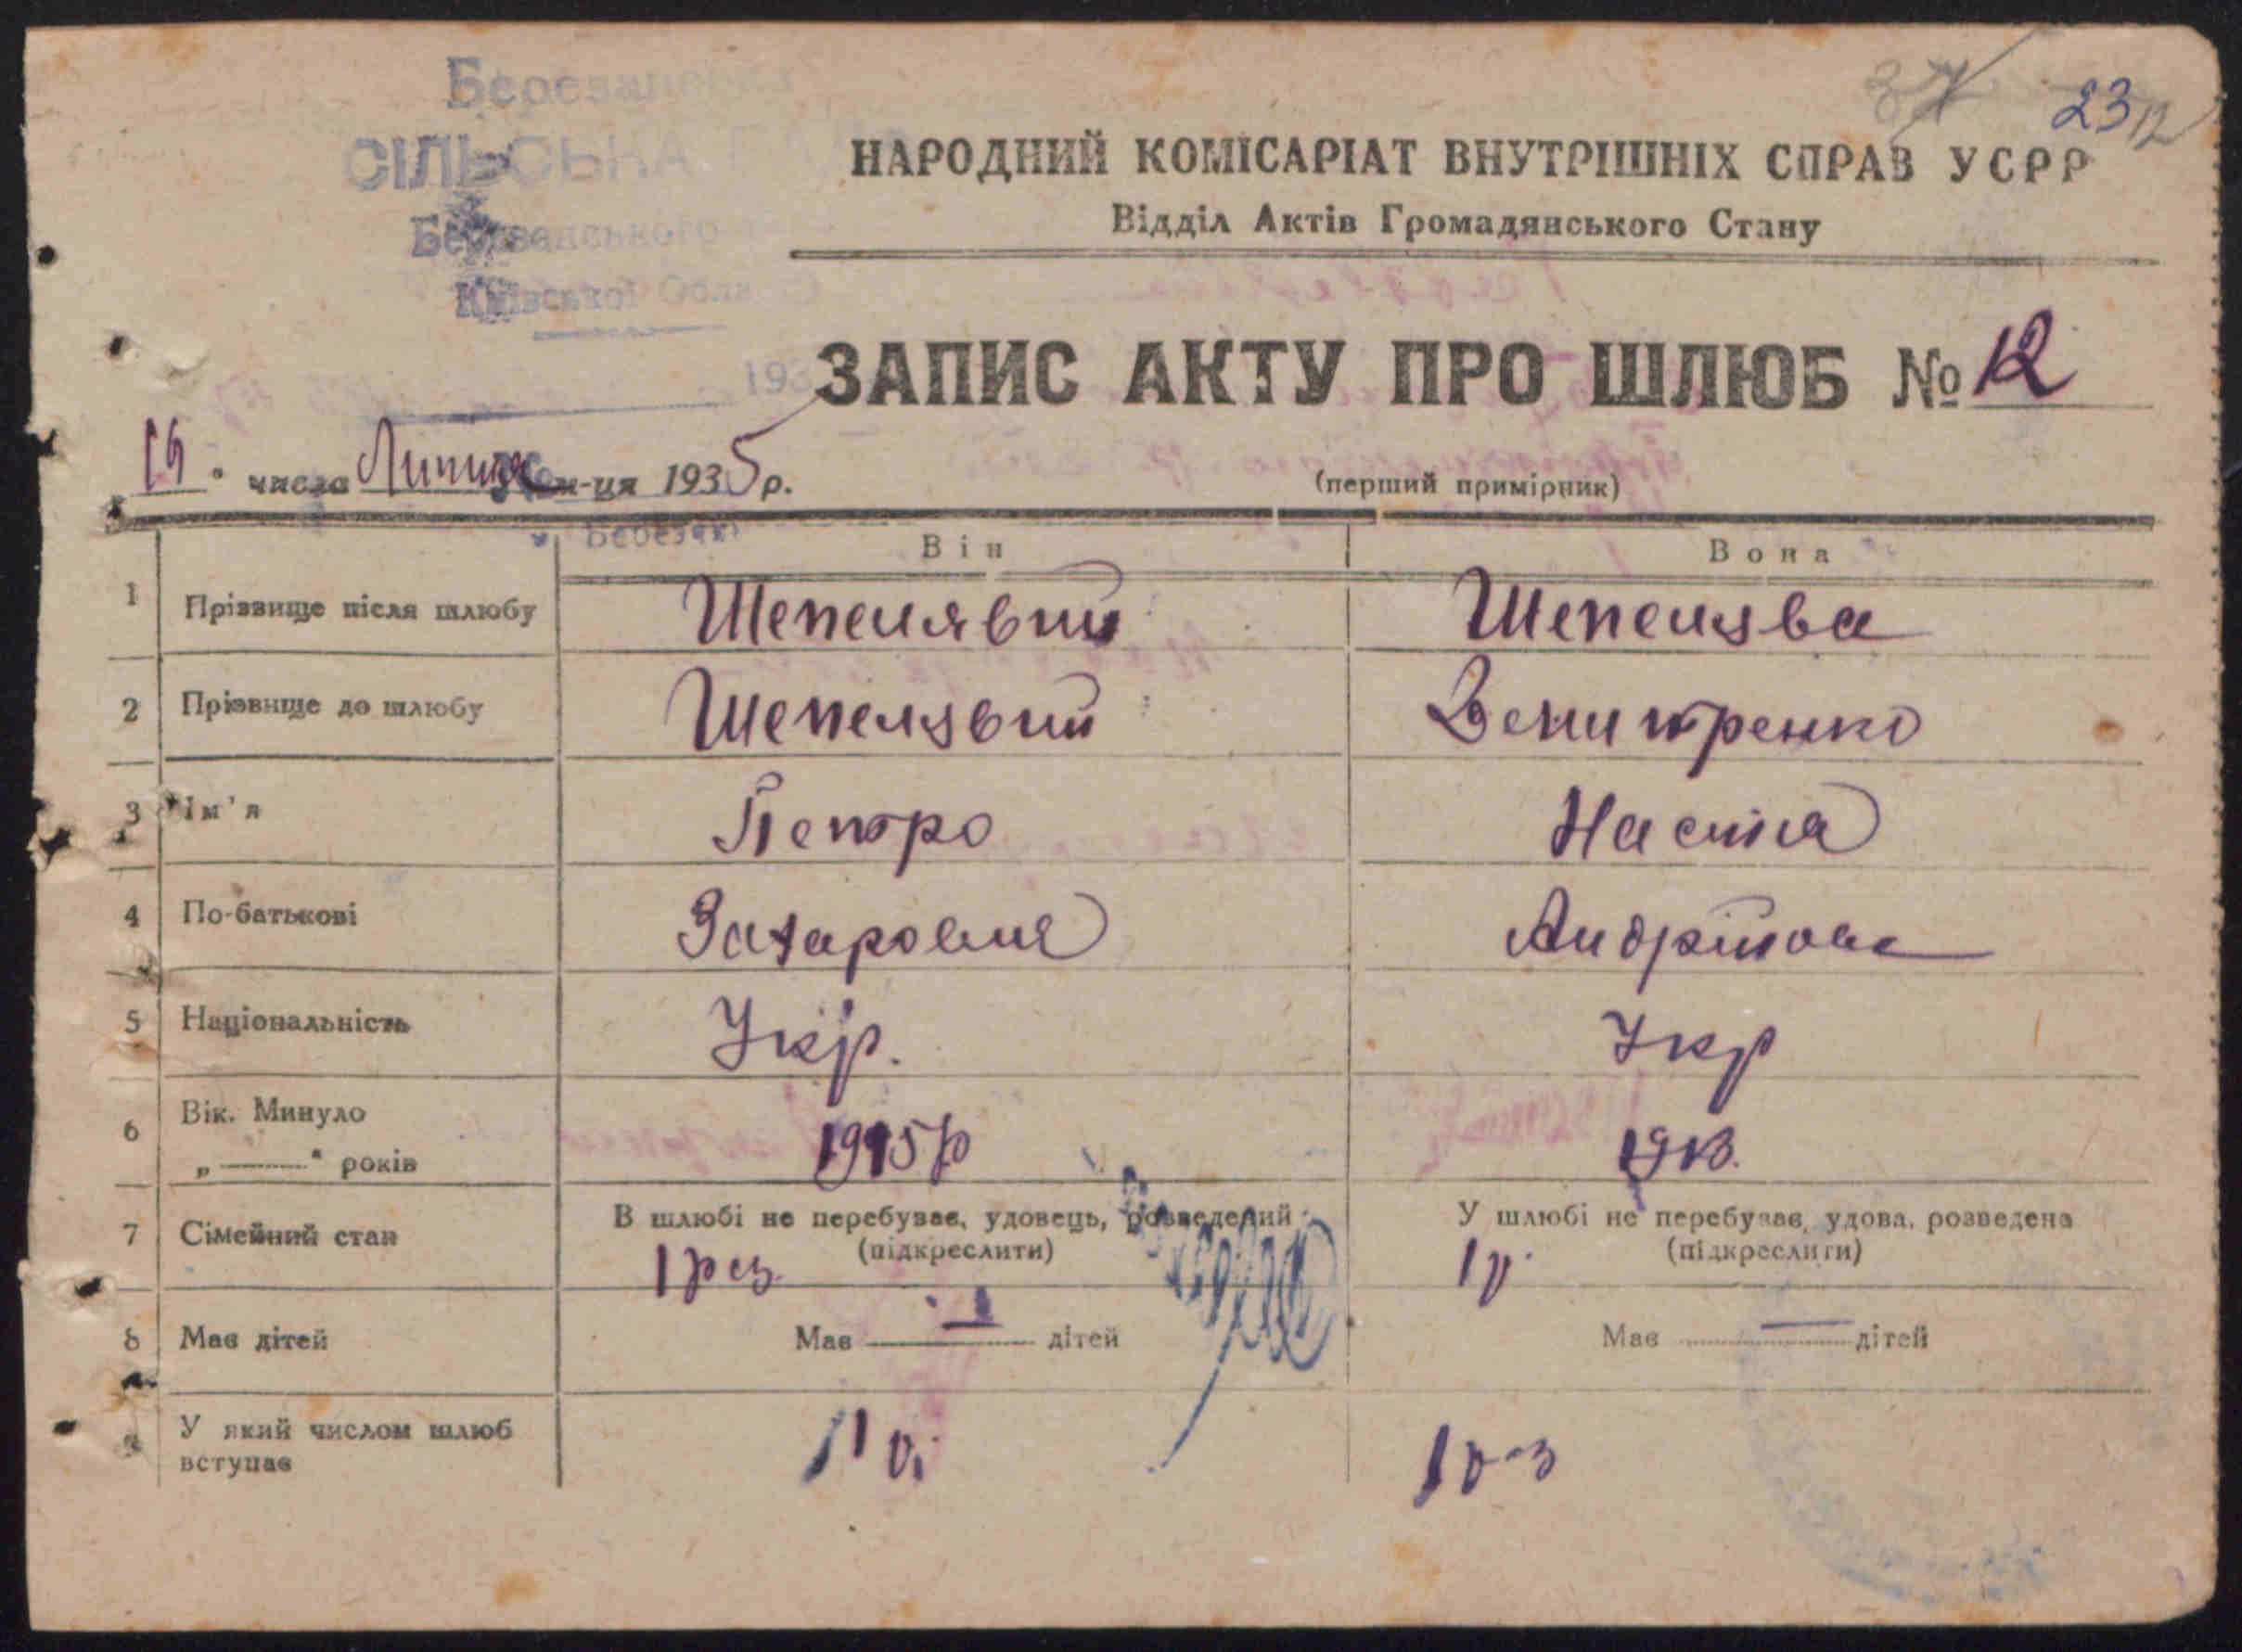 Березанська
СІЛЬСЬКА
Березанського
Київської Обла
193
23
12
НАРОДНИЙ КОМІСАРІАТ ВНУТРІШНІХ СПРАВ УСРР
Відділ Актів Громадянського Стану
ЗАПИС АКТУ ПРО ШЛЮБ № 12
числа Липня м-ця 1935 р.
(перший примірник)
Він Вона
1 Прізвище після шлюбу Шепелявий Шепелява
2 Прізвище до шлюбу Шепелявий
3 Ім'я Петро Настя
4 По-батькові Захарович Андріївна
5 Національність Укр. Укр
6 Вік. Минуло
„ — " років 1915 р 1913.
7 Сімейний стан В шлюбі не перебуває, удовець, розведений У шлюбі не перебуває, удова, розведена
(підкреслити) (підкреслити)
8 Має дітей Має — дітей Має — дітей
У який числом шлюб
вступає